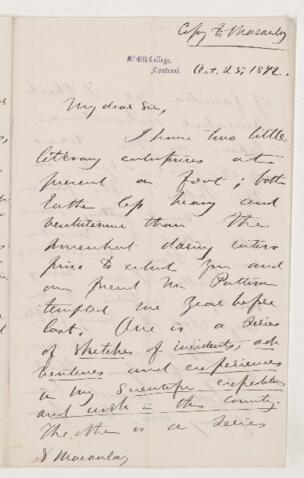 Copy to Macaulay
McGill College,
Montreal.
Oct. 25, 1872.
My dear Sir,
I have two little
literary enterprises at
present on foot; both
rather top heavy and
venturesome than the
somewhat daring enter
prise to which you and
our friend Mr
tempted me year before
last. One is a series
of sketches of incidents, ad
ventures and experiences
in my Scientific expeditions
and work in this country.
The other is a series
Macaulay